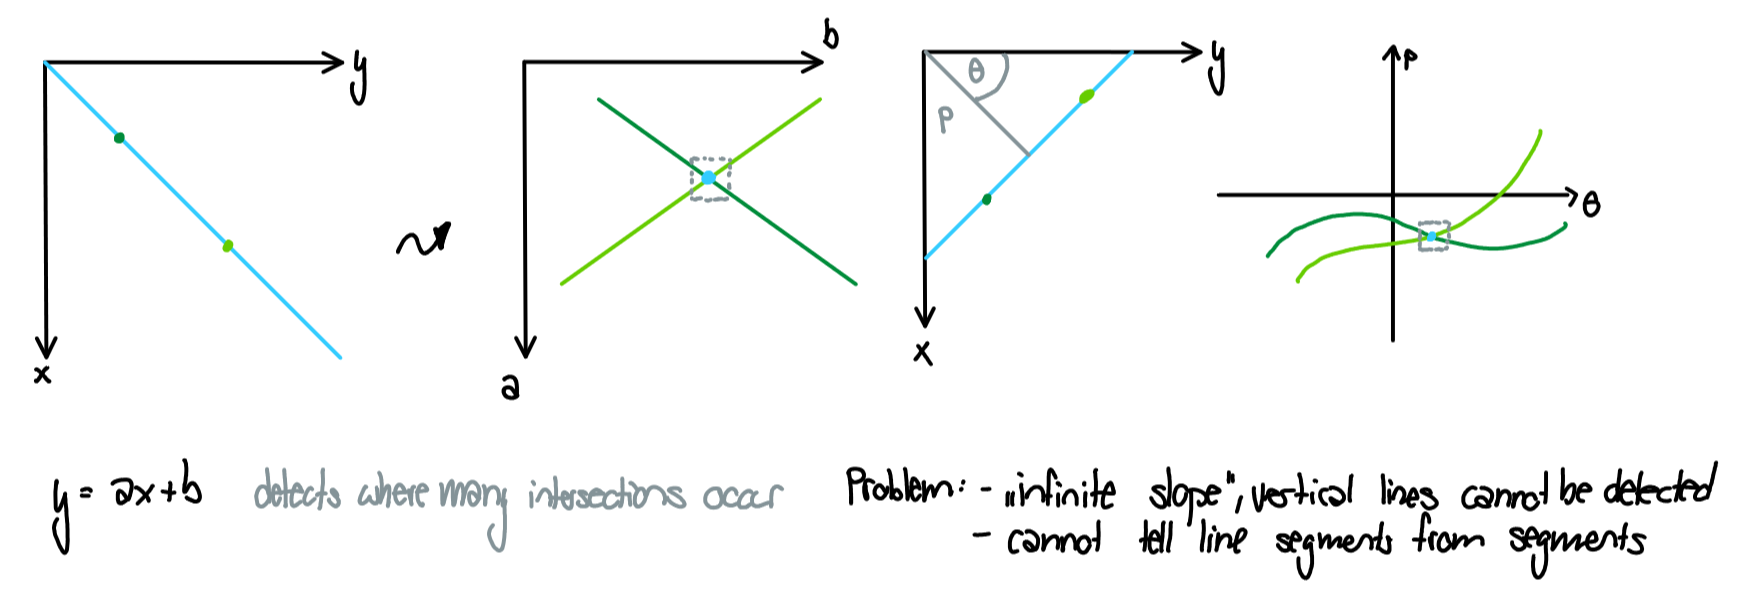 y
x
b
a
y
θ
p
x
p
θ
y = ax+b
detects where many intersections occur
Problem: - „infinite slope", vertical lines cannot be detected
- cannot tell line segments from segments